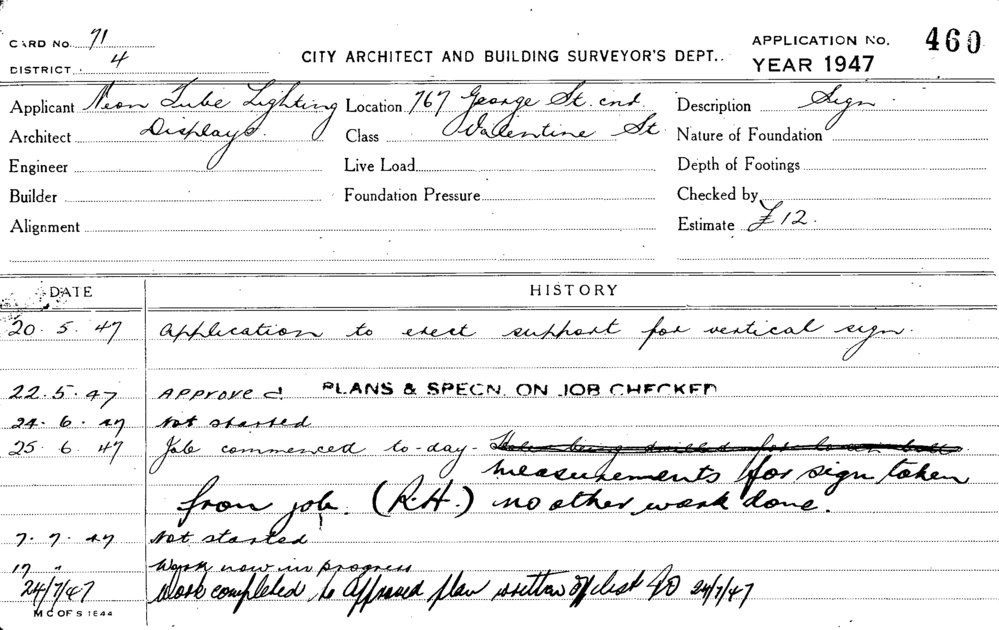 CARD No. 71
DISTRICT 4
CITY ARCHITECT AND BUILDING SURVEYOR'S DEPT..
APPLICATION No. 460
YEAR 1947
Applicant Neon Tube Lighting
Location 767 George St. cnr
Description Sign
Architect Displays.
Class Valentine St
Nature of Foundation
Engineer
Live Load
Depth of Footings
Builder
Foundation Pressure
Checked by
Alignment
Estimate £12.
DATE HISTORY
20. 5. 47 Application to erect support for vertical sign.
22. 5. 47 APPROVED PLANS & SPECN. ON JOB CHECKED
24. 6. 47 Not started
25 6. 47 Job commenced to-day - Holes being drilled for
measurements for sign taken
from job. (R.H.) no other work done.
7. 7. 47 Not started
17 " Work now in progress
24/7/47 Work completed to Approved plan written off dist 24/7/47
M C OF S 1E44